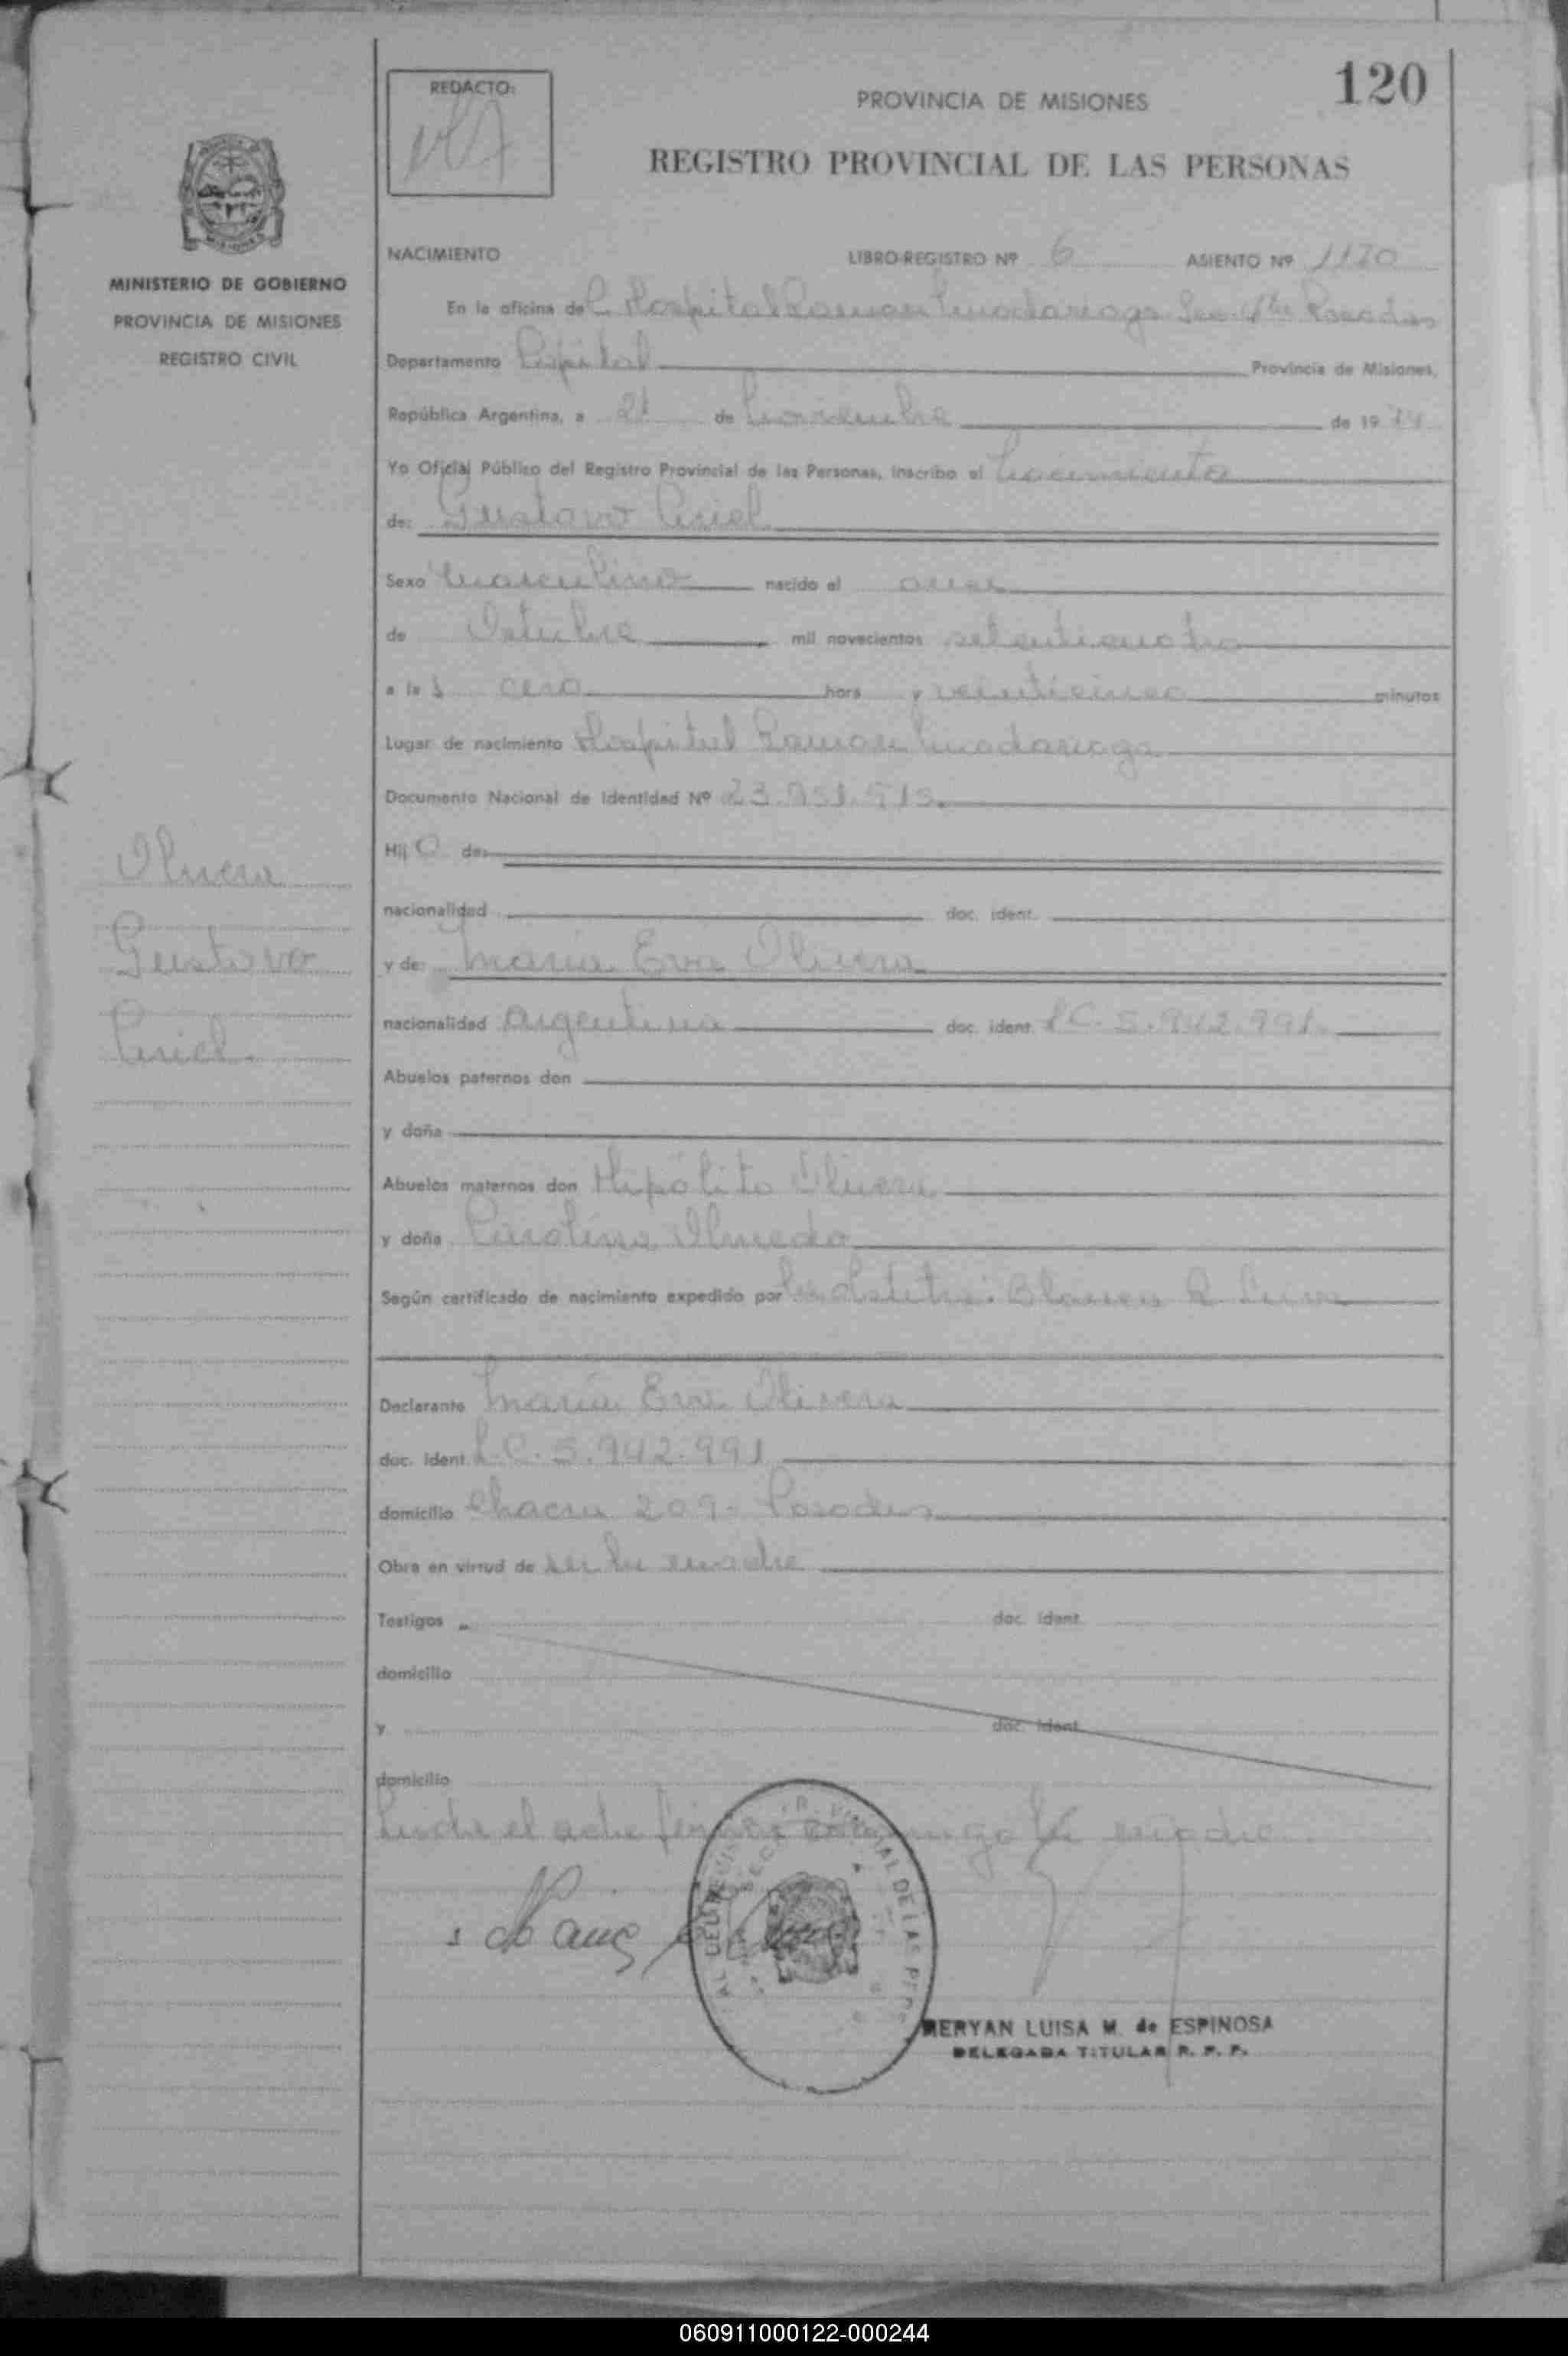 120
REDACTO:
PROVINCIA DE MISIONES
REGISTRO PROVINCIAL DE LAS PERSONAS
MINISTERIO DE GOBIERNO
PROVINCIA DE MISIONES
REGISTRO CIVIL
NACIMIENTO LIBRO-REGISTRO Nº 6 ASIENTO Nº 1170
En la oficina de Hospital Ramon Madariaga Posadas
Departamento Capital Provincia de Misiones,
República Argentina, a 21 de Noviembre de 19 74
Yo Oficial Público del Registro Provincial de las Personas, inscribo el Nacimiento
de: Gustavo Ariel
Sexo Masculino nacido el once
de Octubre mil novecientos setenticuatro
a las cero hora y veinticinco minutos
Lugar de nacimiento Hospital Ramon Madariaga
Documento Nacional de Identidad Nº 23.951.515.
Hijo de:
nacionalidad doc. ident.
y de: Maria Eva Olivera
nacionalidad Argentina doc. ident. L.C. 5.942.991.
Abuelos paternos don
y doña
Abuelos maternos don Hipólito Olivera
y doña Carolina Olmedo
Según certificado de nacimiento expedido por Blanca R.
Declarante Maria Eva Olivera
doc. ident. L.C. 5.942.991
domicilio Chacra 209- Posadas
Obra en virtud de ser la madre
Testigos doc. ident.
domicilio
y doc. ident.
domicilio
el acta la madre
MERYAN LUISA M. de ESPINOSA
DELEGADA TITULAR R. P. P.
Olivera
Gustavo
Ariel.
060911000122-000244